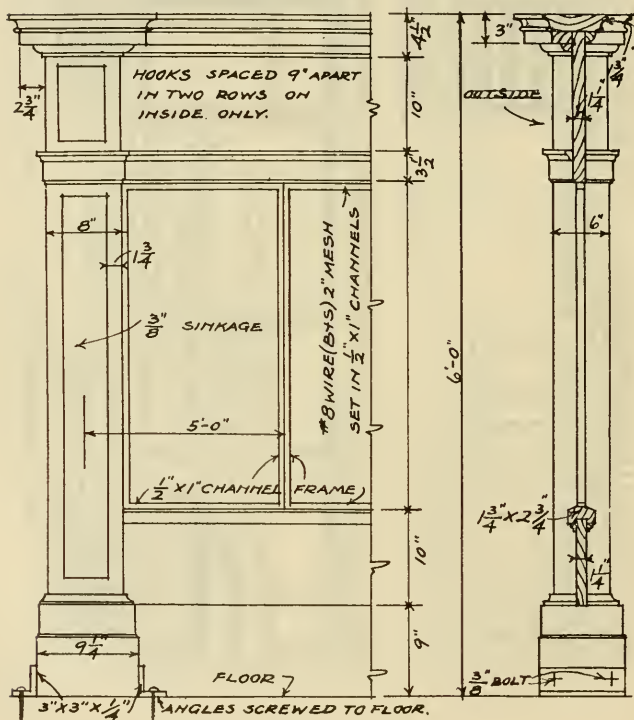 4 1/2"
3"
3/4"
1 1/4"
HOOKS SPACED 9" APART
IN TWO ROWS ON
INSIDE ONLY.
2 3/4"
10"
OUTSIDE
3 1/2"
8"
6"
1 3/4
3/8" SINKAGE
#8 WIRE (B+S) 2" MESH
SET IN 1/2" X 1" CHANNELS
6'-0"
5'-0"
1/2" X 1" CHANNEL FRAME
1 3/4" X 2 3/4"
10"
1 1/4"
9"
9 1/4"
FLOOR
3/8" BOLT
3" X 3" X 1/4" ANGLES SCREWED TO FLOOR.